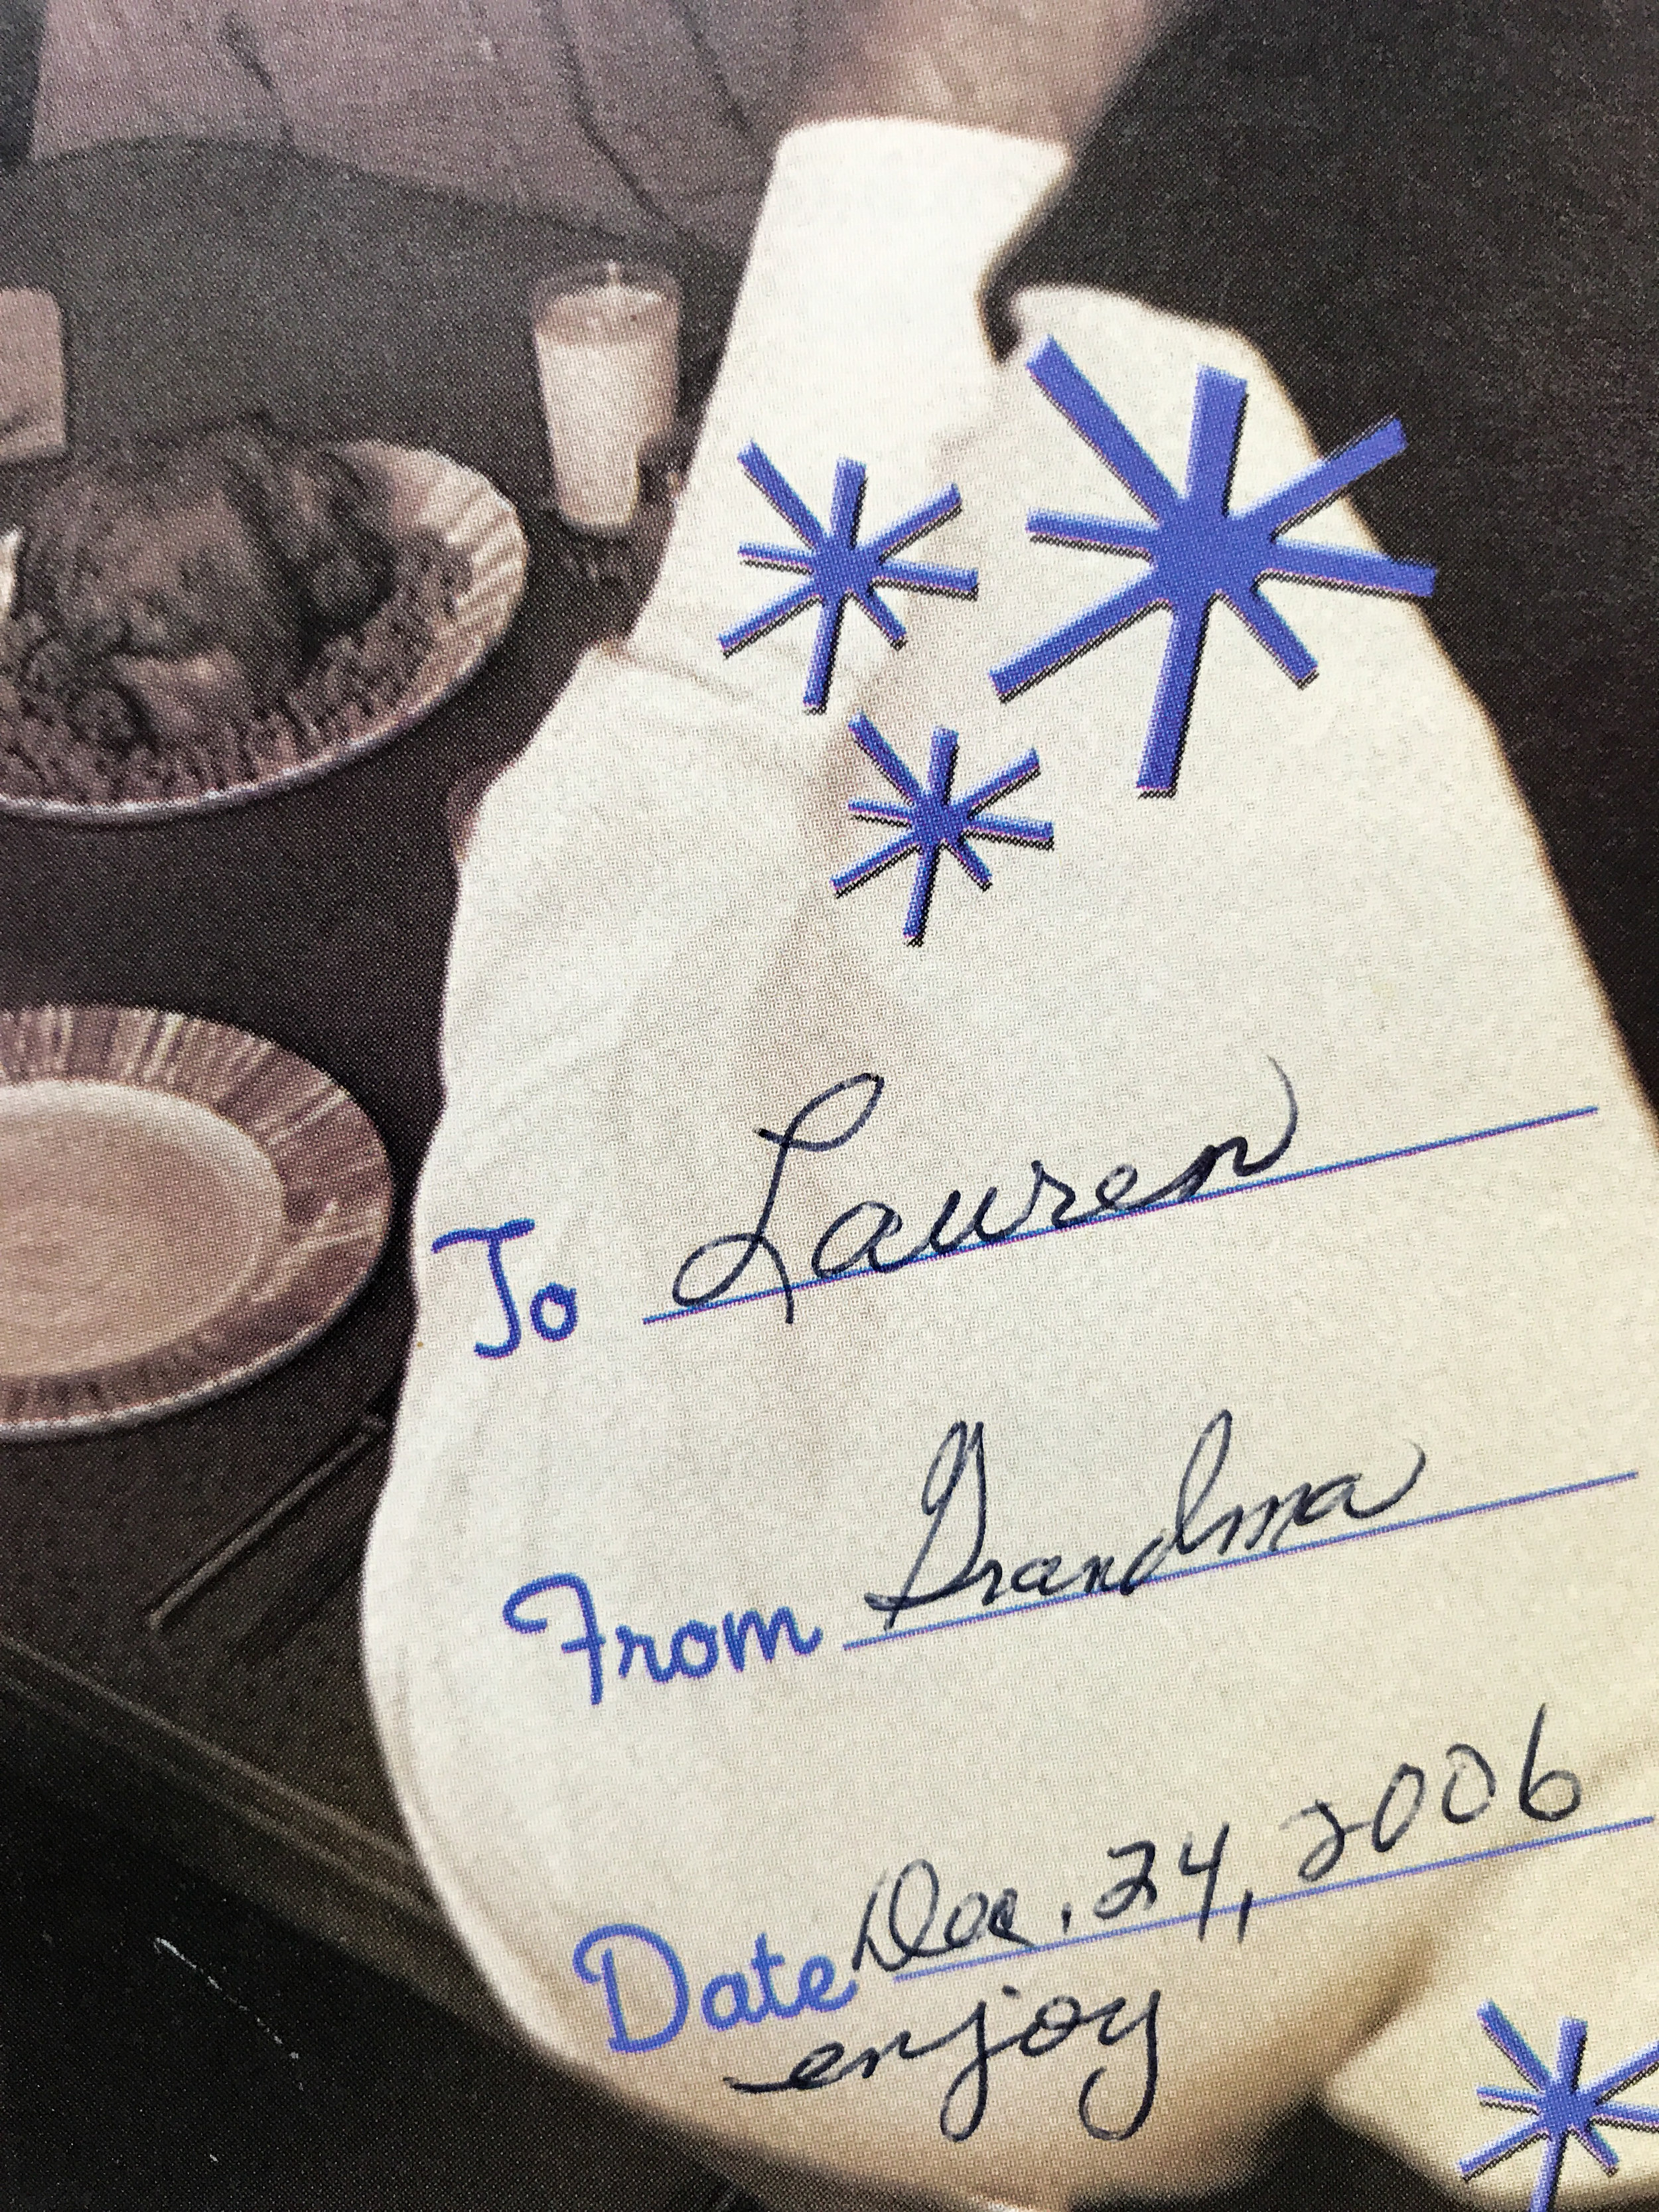 To Lauren
From Grandma
Date Dec. 24, 2006
enjoy